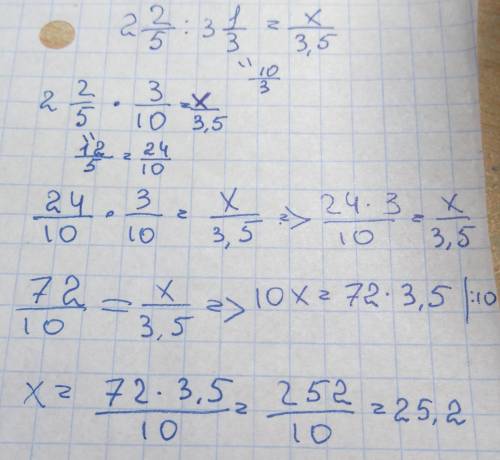 2 2/5 : 3 1/3 = x/3,5
" 10/3
2 2/5 · 3/10 = x/3,5
" 12/5 = 24/10
24/10 · 3/10 = x/3,5 => 24·3/10 = x/3,5
72/10 = x/3,5 => 10x = 72·3,5 |:10
x = 72·3,5/10 = 252/10 = 25,2